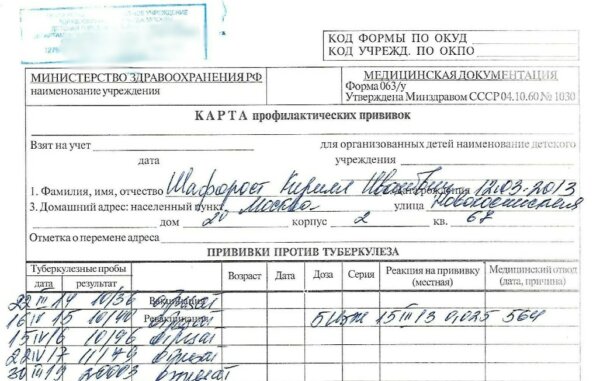 КОД ФОРМЫ ПО ОКУД
КОД УЧРЕЖД. ПО ОКПО
МИНИСТЕРСТВО ЗДРАВООХРАНЕНИЯ РФ
наименование учреждения
МЕДИЦИНСКАЯ ДОКУМЕНТАЦИЯ
Форма 063/у
Утверждена Минздравом СССР 04.10.60 № 1030
КАРТА профилактических прививок
Взят на учет
дата
для организованных детей наименование детского учреждения
1. Фамилия, имя, отчество Шафорост Кирилл рождения 12.03.2013
3. Домашний адрес: населенный пункт Москва улица
дом 20 корпус 2 кв. 67
Отметка о перемене адреса
ПРИВИВКИ ПРОТИВ ТУБЕРКУЛЕЗА
Туберкулезные пробы
дата результат Возраст Дата Доза Серия Реакция на прививку (местная) Медицинский отвод (дата, причина)
22 III 14 10/36 Вакцинация
16 IV 15 10/40 Ревакцинация 15 III 13 0,025 564
15 IV 16 10/96 отрицат
22 IV 17 11/79 отрицат
30 III 19 отрицат